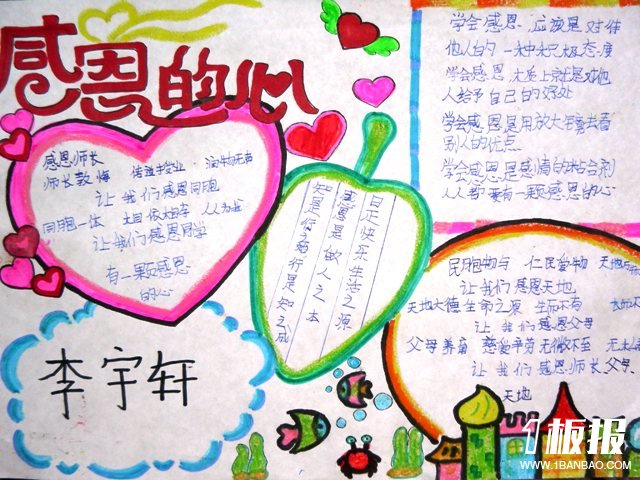 感恩的心
学会感恩 应该是对待
他人的一种积极态度
学会感恩 本质上就是对他
人给予自己的好处
学会感恩是用放大镜去看
别人的优点
学会感恩是感情的粘合剂
人人都要有一颗感恩的心
感恩师长
师长教悔 传道授业 润物无声
让我们感恩同胞
同胞一体
让我们感恩同学
有一颗感恩
的心
日正快乐 生活之源
感恩是做人之本
知是行之始行是知之成
民胞物与 仁民爱物 天地
让我们感恩天地
天地大德 生命之源 生而不有
让我们感恩父母
父母养育 慈爱辛劳 无微不至
让我们感恩师长 父母
天地
李宇轩
1板报
WWW.1BANBAO.COM